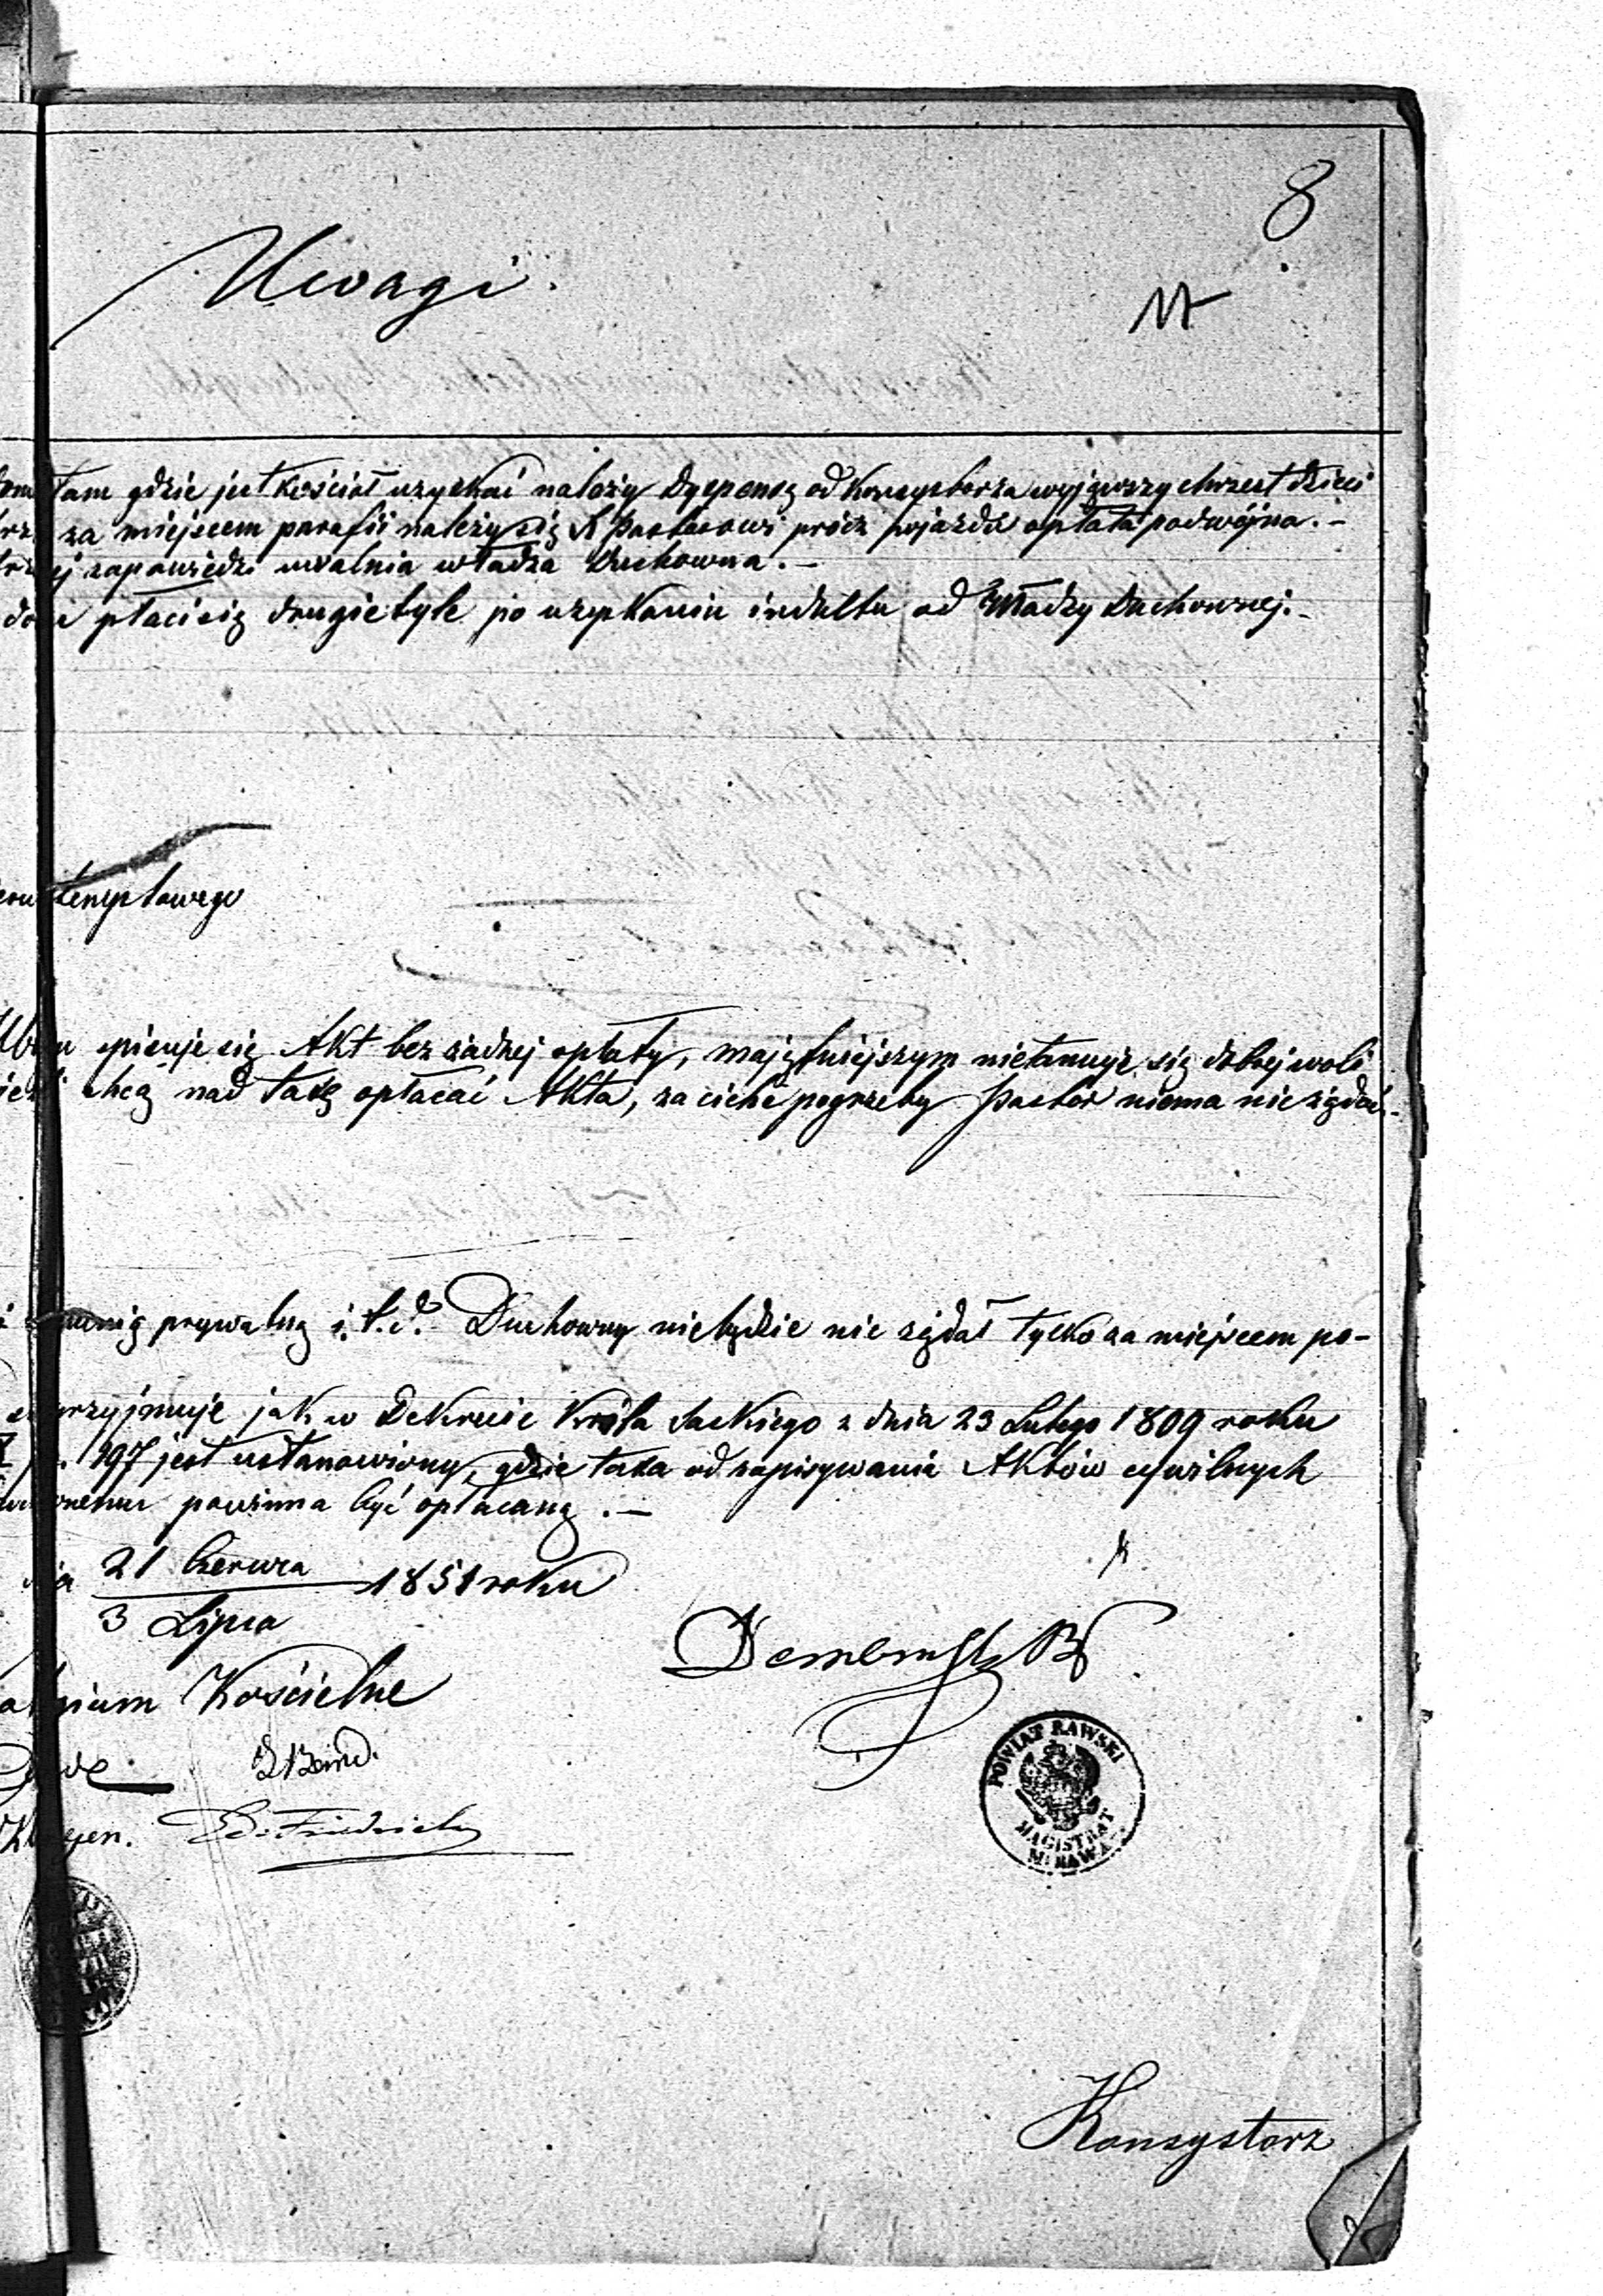 8
Uwagi.
17
tam gdzie jest kościół uzyskać należy Dyspensę od Konsystorza wyjąwszy chrzest dzieci
za miejscem parafii należy się X Pastorowi prócz pojazdu opłata podwójna. –
zapowiedzi uwalnia władza Duchowna. –
płaci się drugie tyle po uzyskaniu indultu od Władzy Duchownej. –
stemplowego
spisuje się Akt bez żadnej opłaty, majętniejszym nietamuje się dobrej woli
chcą nad taxę opłacać Akta, za ciche pogrzeby Pastor niema nic żądać. –
prywatną i.t.d. Duchowny niebędzie nic żądał tylko za miejscem po-
przyjmuje jak w Dekrecie Króla Saskiego z dnia 23 Lutego 1809 roku
197 jest ustanowiony, gdzie taxa od zapisywania Aktów cywilnych
powinna być opłacaną. –
21 Czerwca
1851 roku
3 Lipca
Kościelne
POWIAT RAWSKI
MAGISTRAT
M. RAWA
Ed. Friedrich
Konsystorz